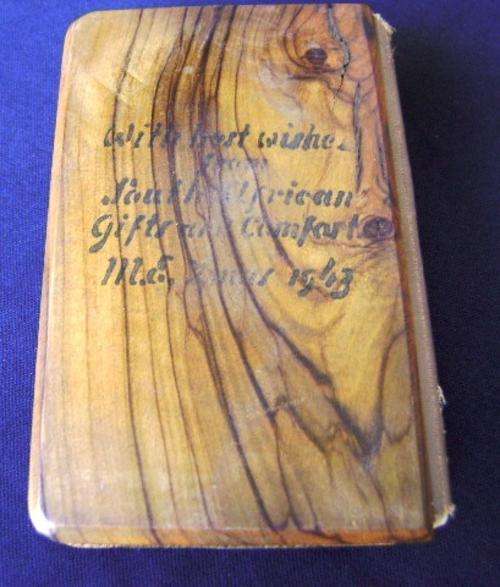 With best wishes
from
South African
Gifts and Comforts
M.E, Xmas 1943